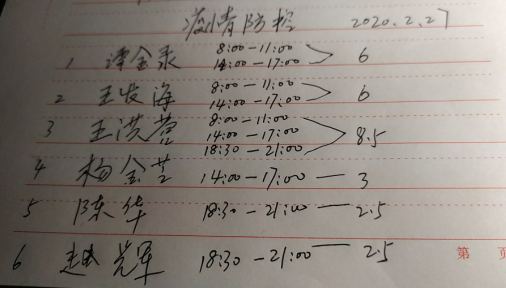 疫情防控 2020.2.27
1 谭金录 8:00-11:00
14:00-17:00 6
2 王发海 8:00-11:00
14:00-17:00 6
3 王洪营 8:00-11:00
14:00-17:00
18:30-21:00 8.5
4 杨金芝 14:00-17:00 — 3
5 陈华 18:30-21:00 — 2.5
6 赵光军 18:30-21:00 — 2.5
第 页